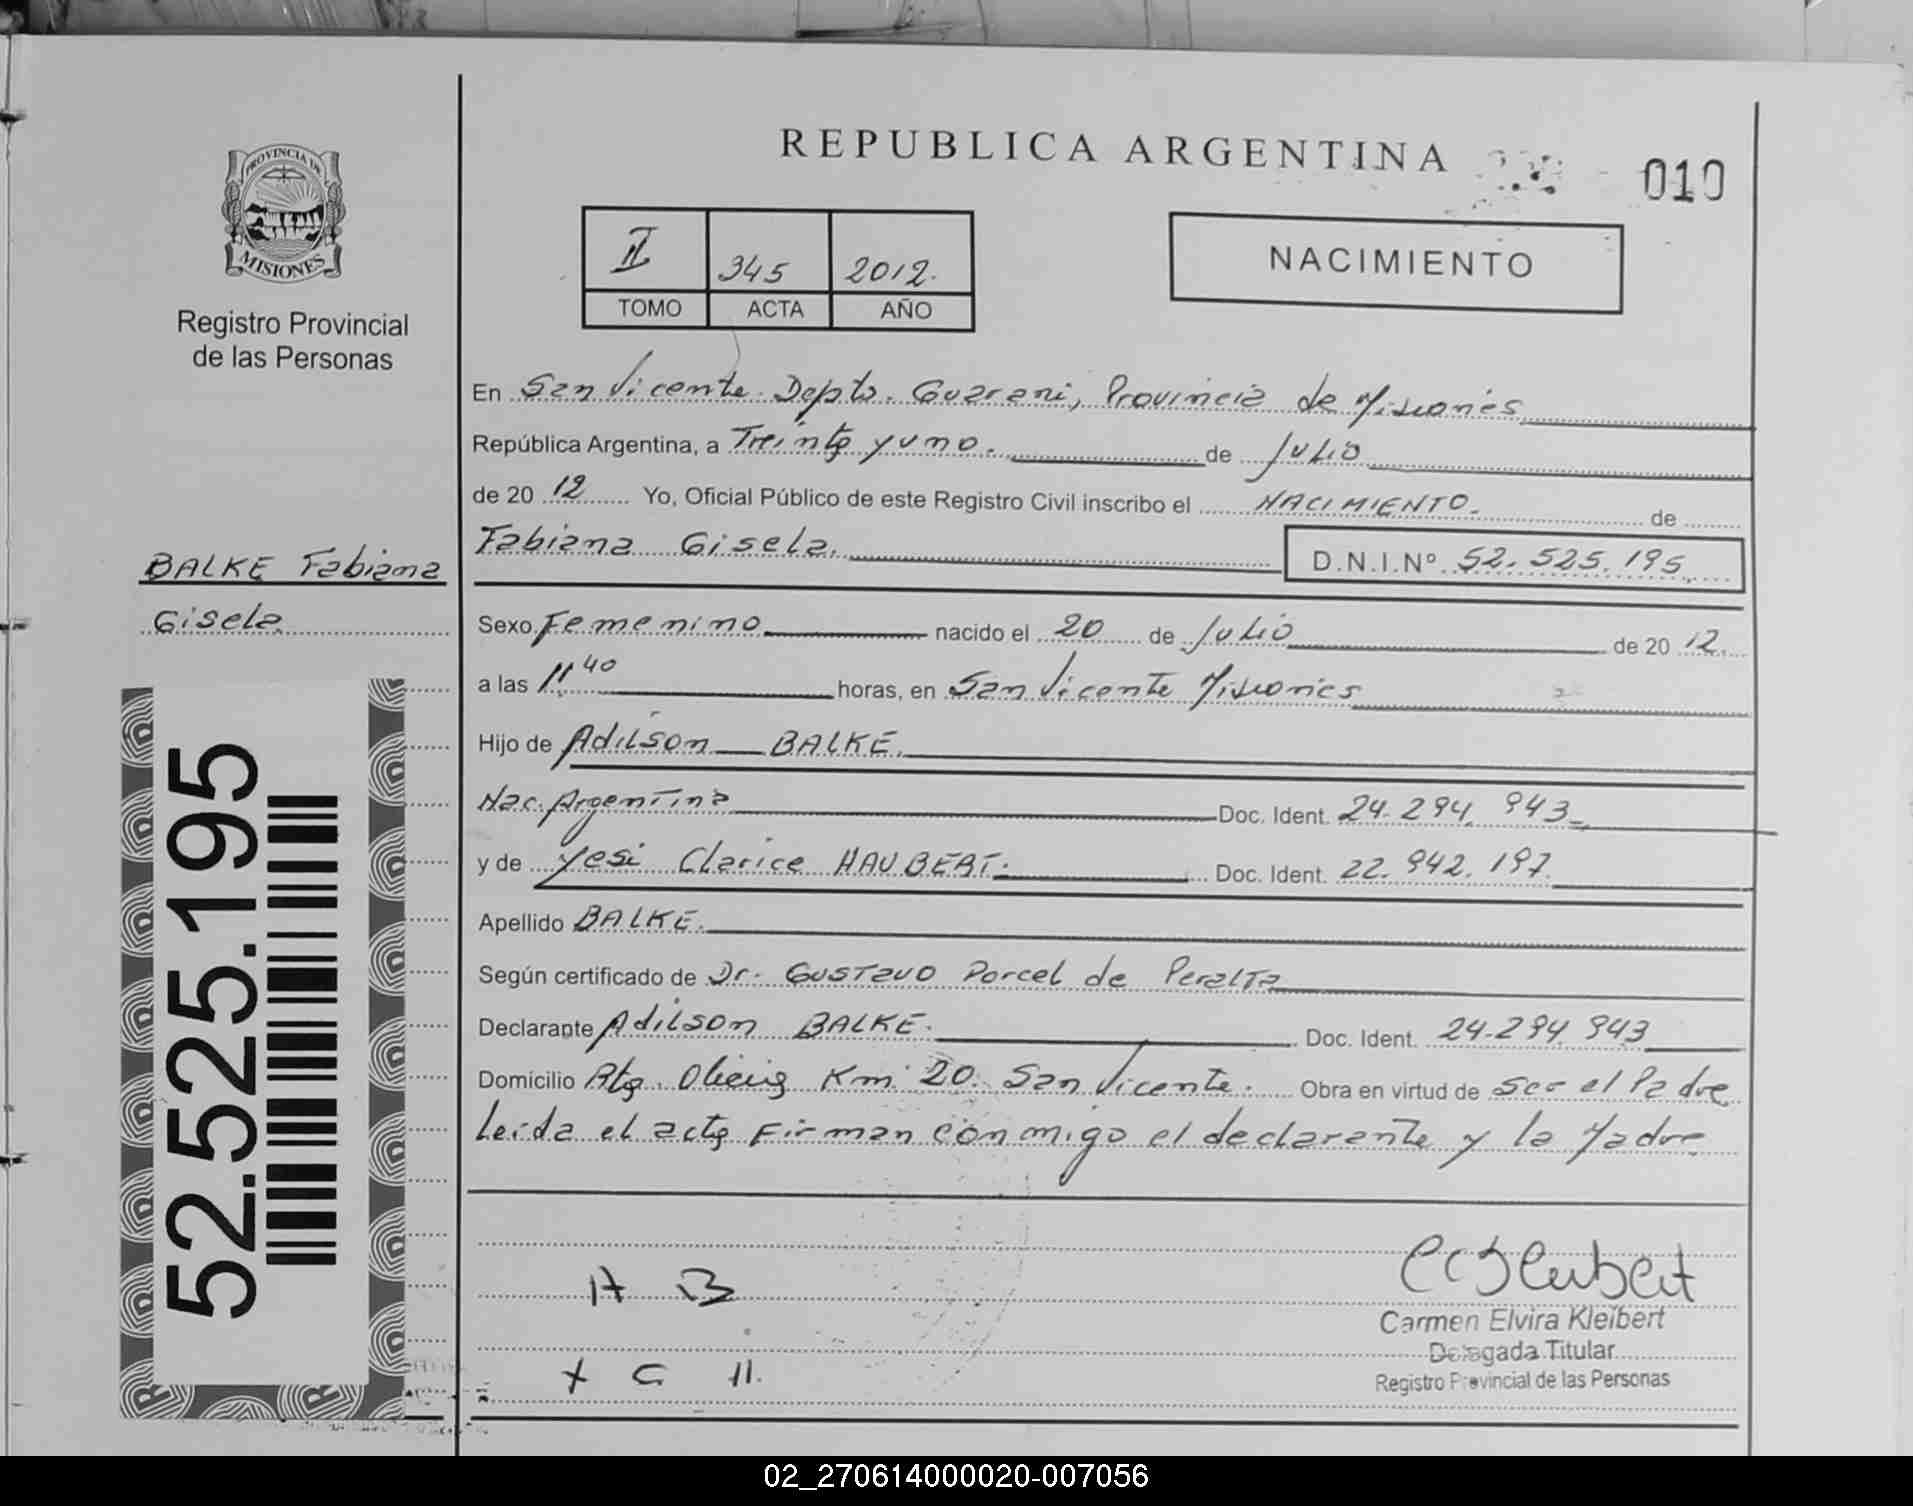 REPUBLICA ARGENTINA
010
PROVINCIA DE
MISIONES
Registro Provincial
de las Personas
II 345 2012.
TOMO ACTA AÑO
NACIMIENTO
En San Vicente Depto. Guarani, Provincia de Misiones
República Argentina, a Treinta y uno. de Julio
de 20 12 Yo, Oficial Público de este Registro Civil inscribo el NACIMIENTO. de
Fabiana Gisela. D.N.I.Nº 52.525.195
BALKE Fabiana
Gisela
Sexo Femenino nacido el 20 de Julio de 20 12.
a las 11 40 horas, en San Vicente Misiones
Hijo de Adilson BALKE.
Nac. Argentina Doc. Ident. 24.294.943
y de Yesi Clarice HAUBERT. Doc. Ident. 22.942.197.
Apellido BALKE.
Según certificado de Dr. Gustavo Porcel de Peralta
Declarante Adilson BALKE. Doc. Ident. 24.294.943
Domicilio Km 20. San Vicente. Obra en virtud de ser el Padre
Leida el acta Firman conmigo el declarante y la Madre
52.525.195
A B
Y C H.
Carmen Elvira Kleibert
Delegada Titular
Registro Provincial de las Personas
02_270614000020-007056